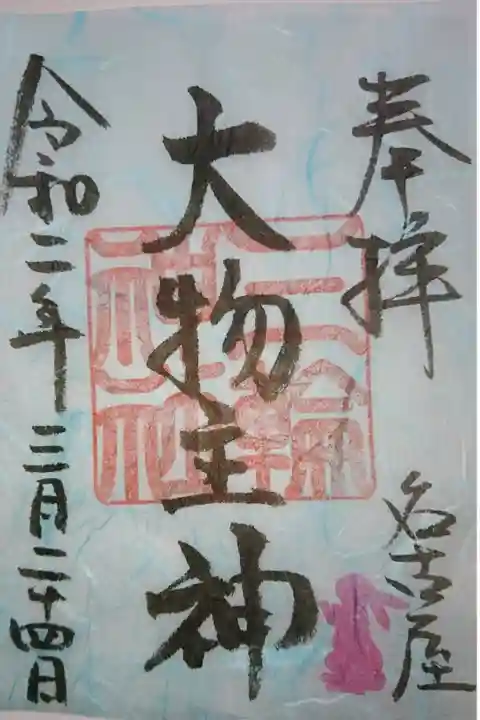 奉拝
名古屋
三輪神社
大物主神
令和二年三月二十四日